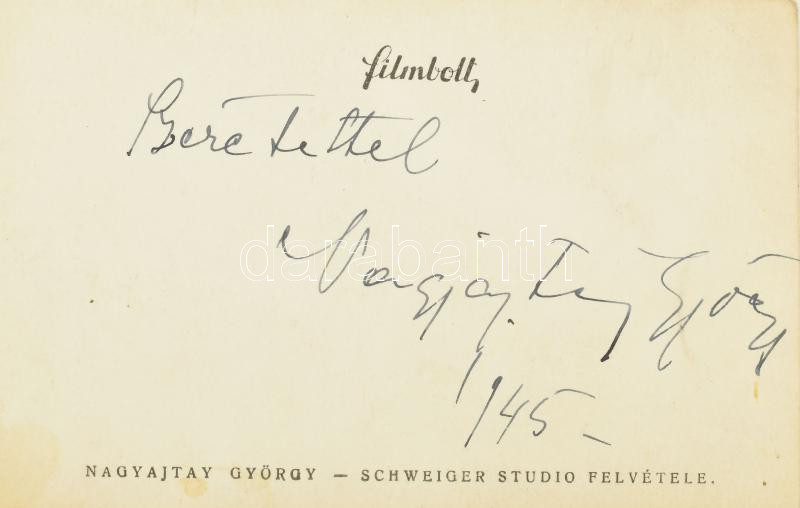 filmbolt,
Szeretettel
Nagyajtay György
1945-
NAGYAJTAY GYÖRGY — SCHWEIGER STUDIO FELVÉTELE.
darabanth